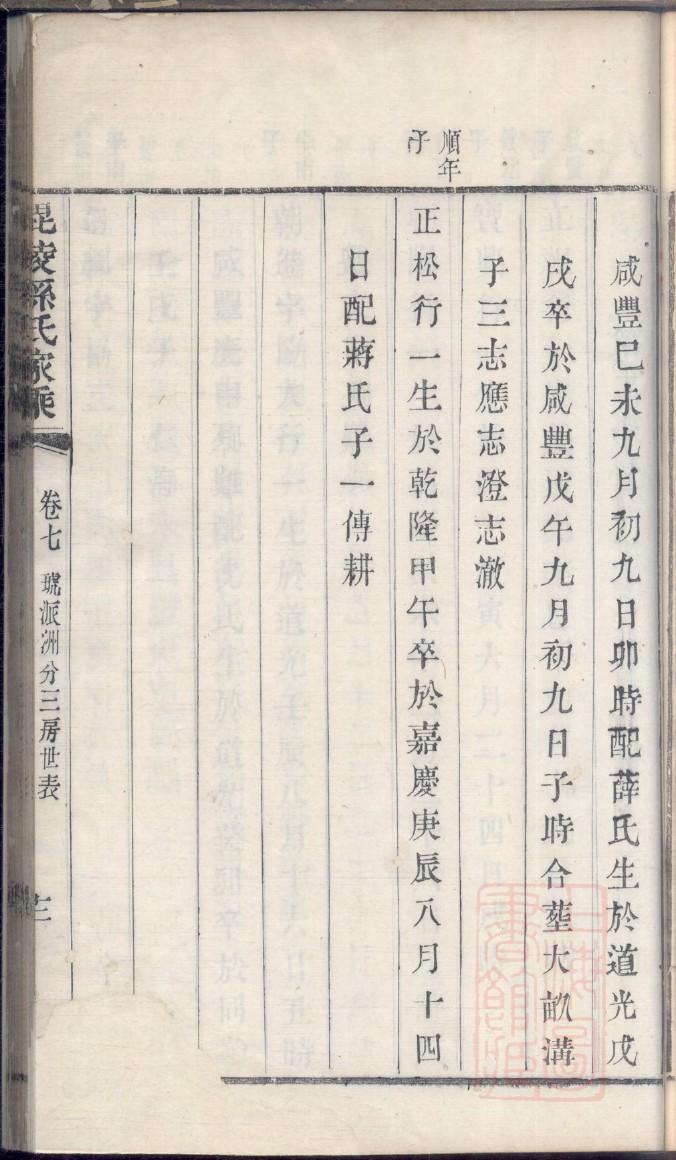 咸豐己未九月初九日卯時配薛氏生於道光戊
戌卒於咸豐戊午九月初九日子時合塟大畝溝
子三志應志澄志澈
順年
子
正松行一生於乾隆甲午卒於嘉慶庚辰八月十四
日配蔣氏子一傳耕
毘陵孫氏家乘
卷七 琥派洲分三房世表
上海圖書館藏